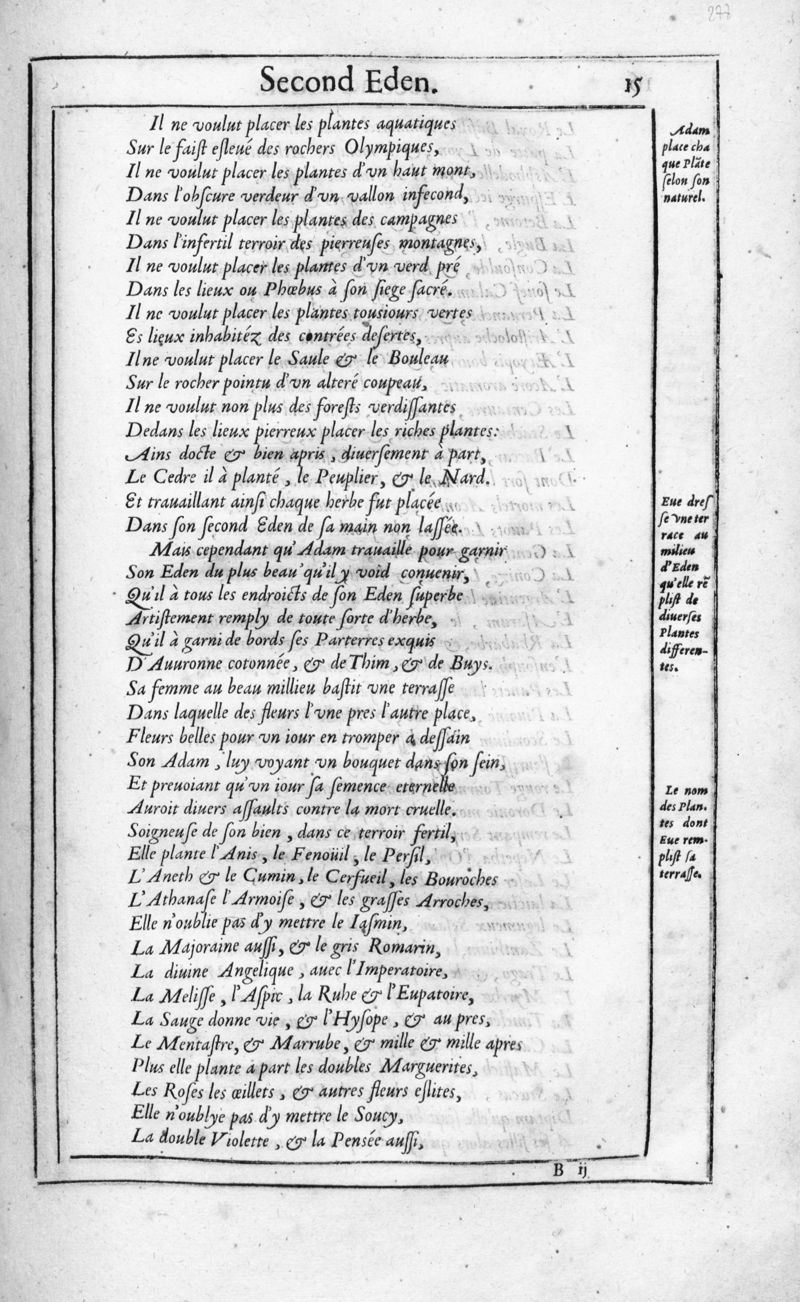 277
Second Eden.
15
Il ne voulut placer les plantes aquatiques
Sur le faiſt eſleué des rochers Olympiques,
Il ne voulut placer les plantes d'vn haut mont,
Dans l'obſcure verdeur d'vn vallon infecond,
Il ne voulut placer les plantes des campagnes
Dans l'infertil terroir des pierreuſes montagnes,
Il ne voulut placer les plantes d'vn verd pré
Dans les lieux ou Phœbus à ſon ſiege ſacré.
Il ne voulut placer les plantes touſiours vertes
Es lieux inhabitéz des contrées deſertes,
Il ne voulut placer le Saule & le Bouleau
Sur le rocher pointu d'vn alteré coupeau,
Il ne voulut non plus des foreſts verdiſſantes
Dedans les lieux pierreux placer les riches plantes:
Ains docte & bien apris, diuerſement à part,
Le Cedre il à planté, le Peuplier, & le Nard.
Et trauaillant ainſi chaque herbe fut placée
Dans ſon ſecond Eden de ſa main non laſſée.
Mais cependant qu'Adam trauaille pour garnir
Son Eden du plus beau'qu'il y void conuenir,
Qu'il à tous les endroicts de ſon Eden ſuperbe
Artiſtement remply de toute ſorte d'herbe,
Qu'il à garni de bords ſes Parterres exquis
D'Auuronne cotonnée, & de Thim, & de Buys.
Sa femme au beau millieu baſtit vne terraſſe
Dans laquelle des fleurs l'vne pres l'autre place,
Fleurs belles pour vn iour en tromper à deſſain
Son Adam, luy voyant vn bouquet dans ſon ſein,
Et preuoiant qu'vn iour ſa ſemence eternelle
Auroit diuers aſſaults contre la mort cruelle.
Soigneuſe de ſon bien, dans ce terroir fertil,
Elle plante l'Anis, le Fenoüil, le Perſil,
L'Aneth & le Cumin, le Cerfueil, les Bouroches
L'Athanaſe l'Armoiſe, & les graſſes Arroches,
Elle n'oublie pas d'y mettre le Iaſmin,
La Majoraine auſſi, & le gris Romarin,
La diuine Angelique, auec l'Imperatoire,
La Meliſſe, l'Aſpic, la Ruhe & l'Eupatoire,
La Sauge donne vie, & l'Hyſope, & au pres,
Le Mentaſtre, & Marrube, & mille & mille apres
Plus elle plante à part les doubles Marguerites,
Les Roſes les œillets, & autres fleurs eſlites,
Elle n'oublye pas d'y mettre le Soucy,
La double Violette, & la Penſée auſſi,
B ij
Adam
place cha
que Plāte
ſelon ſon
naturel.
Eue dreſ
ſe vne ter
race au
milieu
d'Eden
qu'elle rē
pliſt de
diuerſes
Plantes
differen-
tes.
Le nom
des Plan.
tes dont
Eue rem-
pliſt ſa
terraſſe.